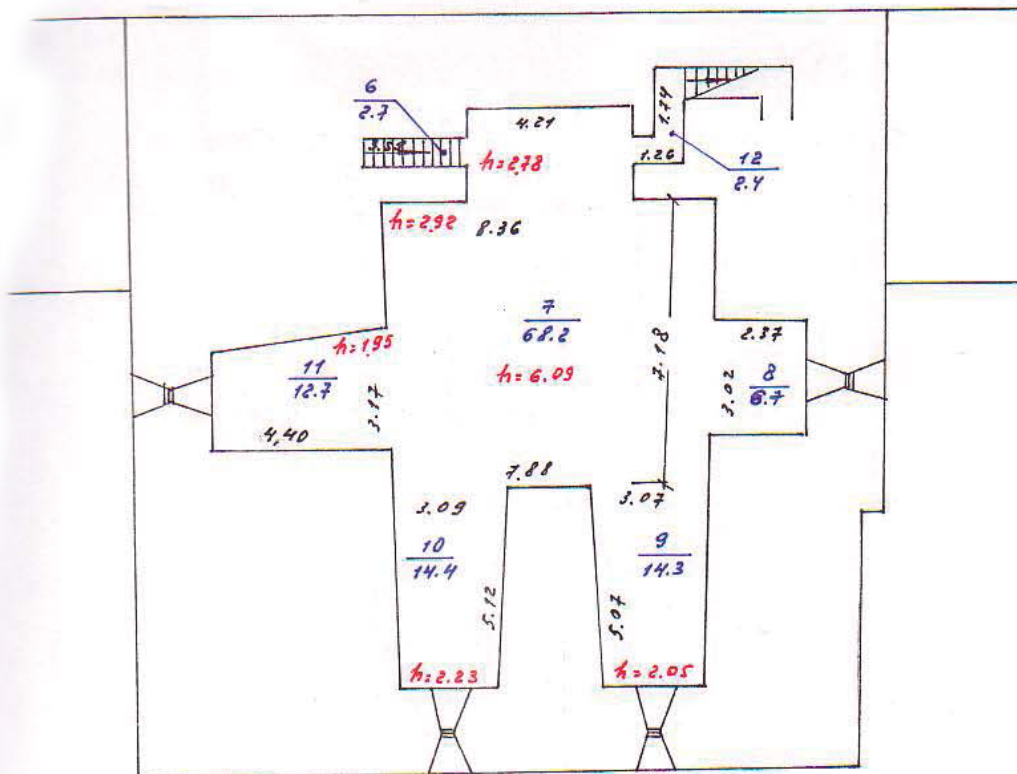 6
2.7
4.21
1.74
3.52
h=2,78
1.26
12
2.4
h=2,92
8.36
7
68.2
2.37
h=1,95
7.18
11
12.7
h=6.09
3.17
3.02
8
6.7
4,40
7.88
3.07
3.09
10
14.4
9
14.3
5.12
5.07
h=2.23
h=2.05